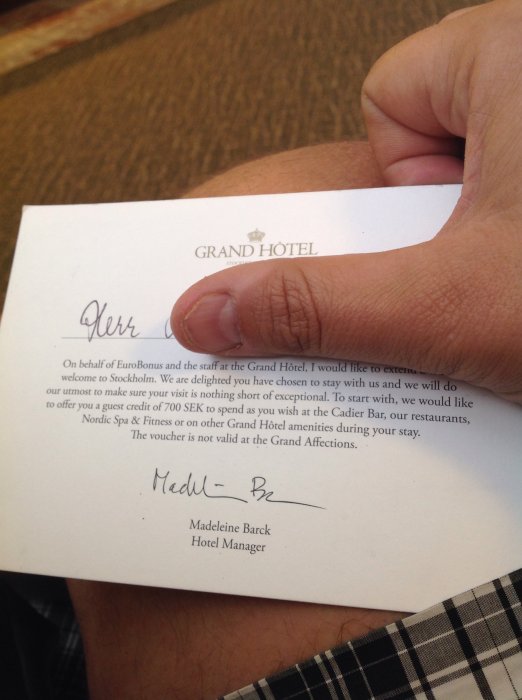 GRAND HÔTEL
Herr
On behalf of EuroBonus and the staff at the Grand Hôtel, I would like to extend
welcome to Stockholm. We are delighted you have chosen to stay with us and we will do
our utmost to make sure your visit is nothing short of exceptional. To start with, we would like
to offer you a guest credit of 700 SEK to spend as you wish at the Cadier Bar, our restaurants,
Nordic Spa & Fitness or on other Grand Hôtel amenities during your stay.
The voucher is not valid at the Grand Affections.
Madeleine Barck
Hotel Manager